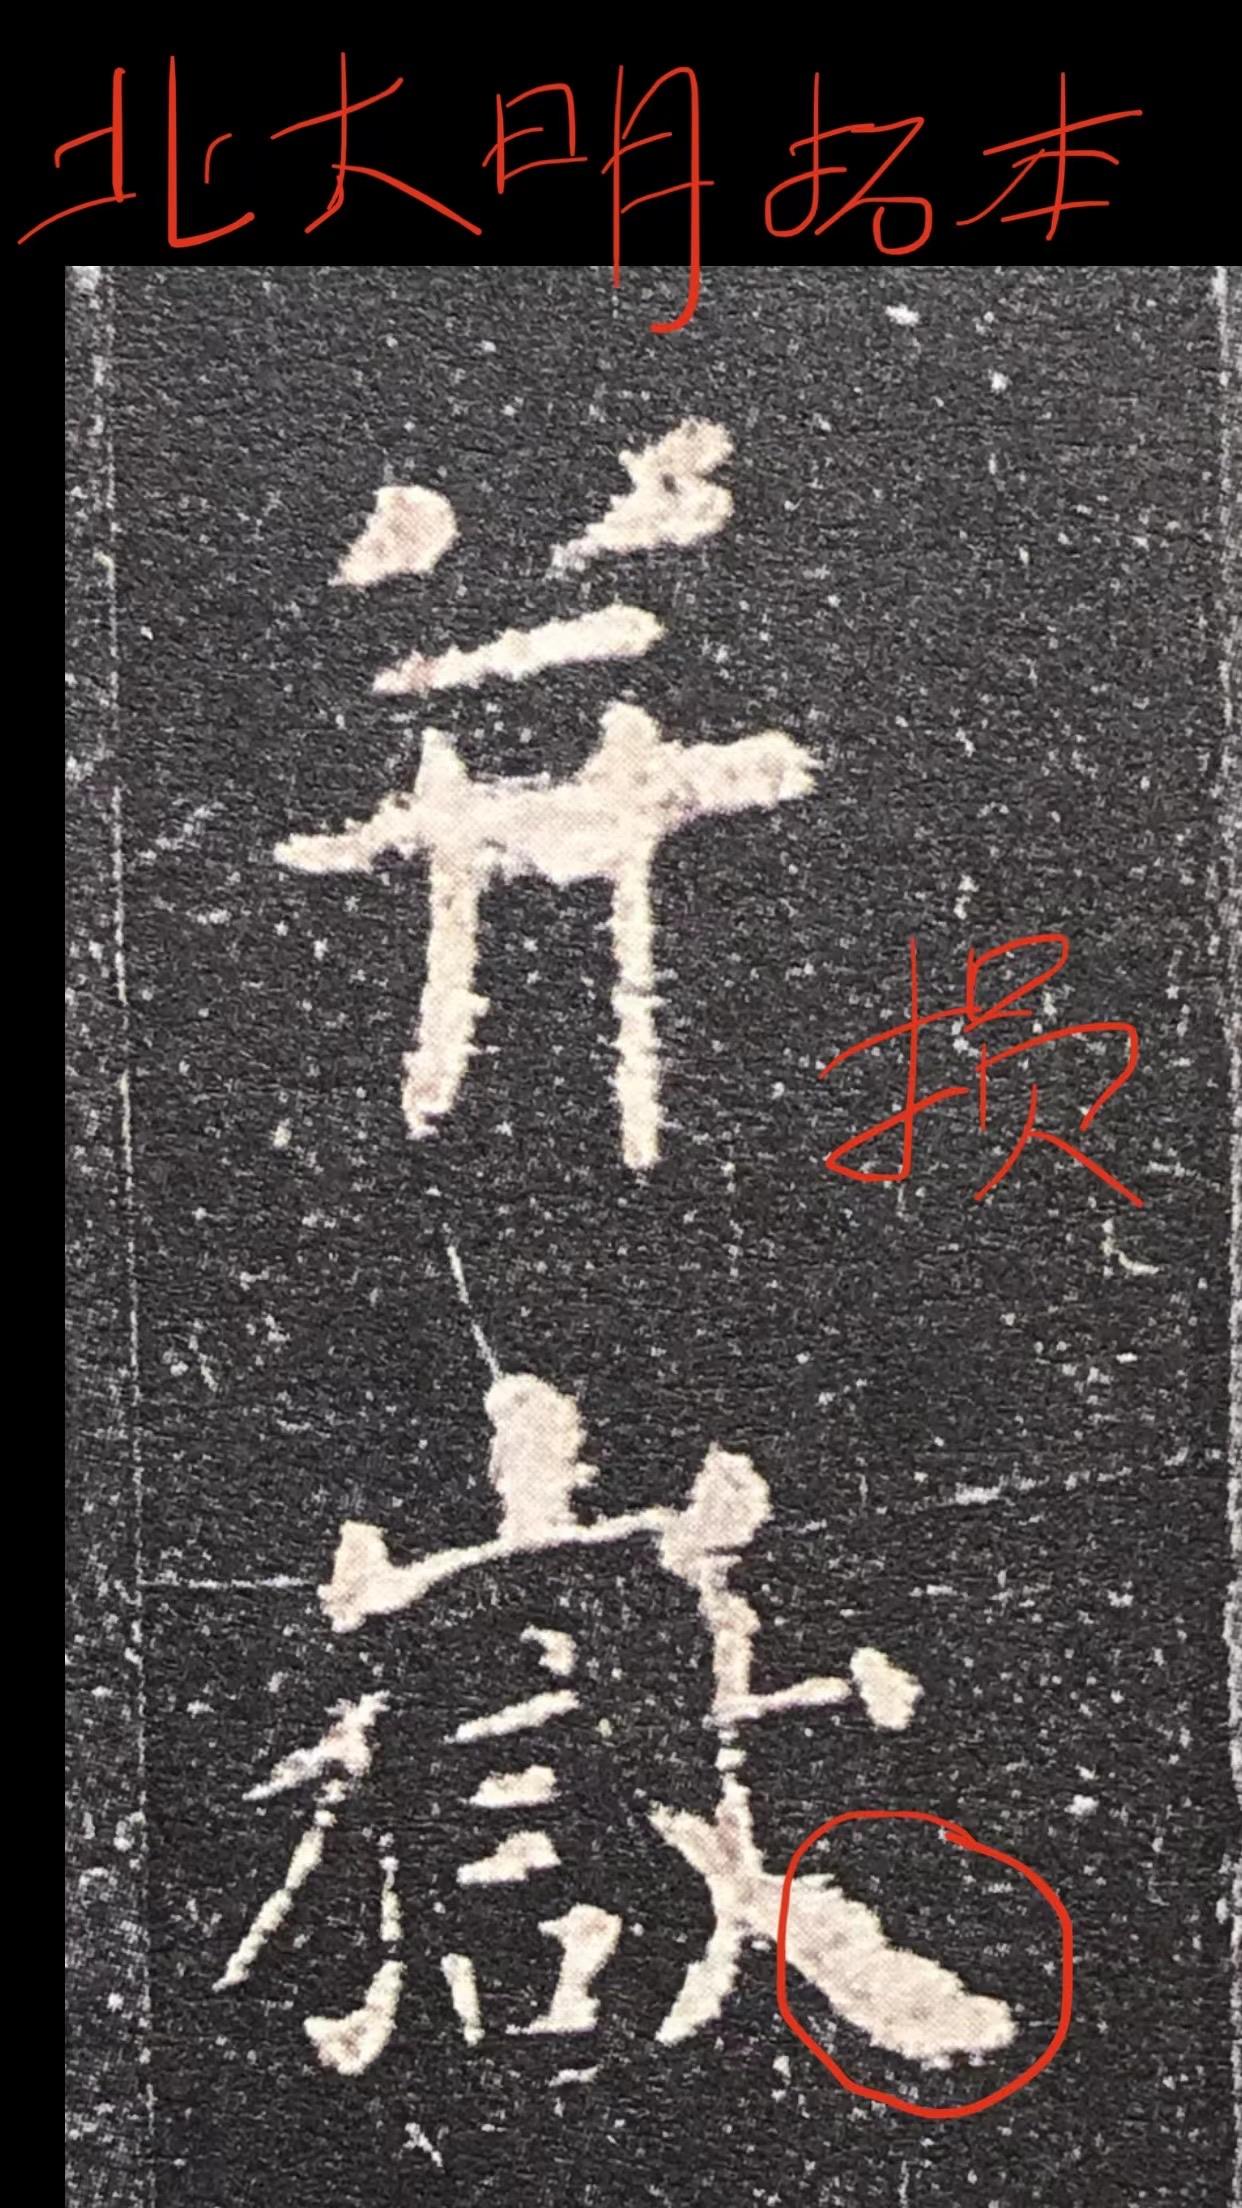 北大明拓本
并
损